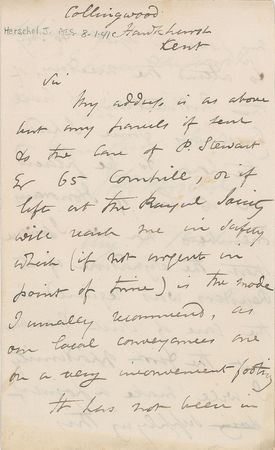 Collingwood
Herschel. J. MS. 8-1-41 Hawkhurst
Kent
Sir
My address is as above
but any parcels if sent
to the care of P. Stewart
Er 65 Cornhill, or if
left at the Royal Society
will reach me in safety
which (if not urgent in
point of time) is the mode
I usually recommend, as
our local conveyances are
on a very inconvenient footing
It has not been in
my